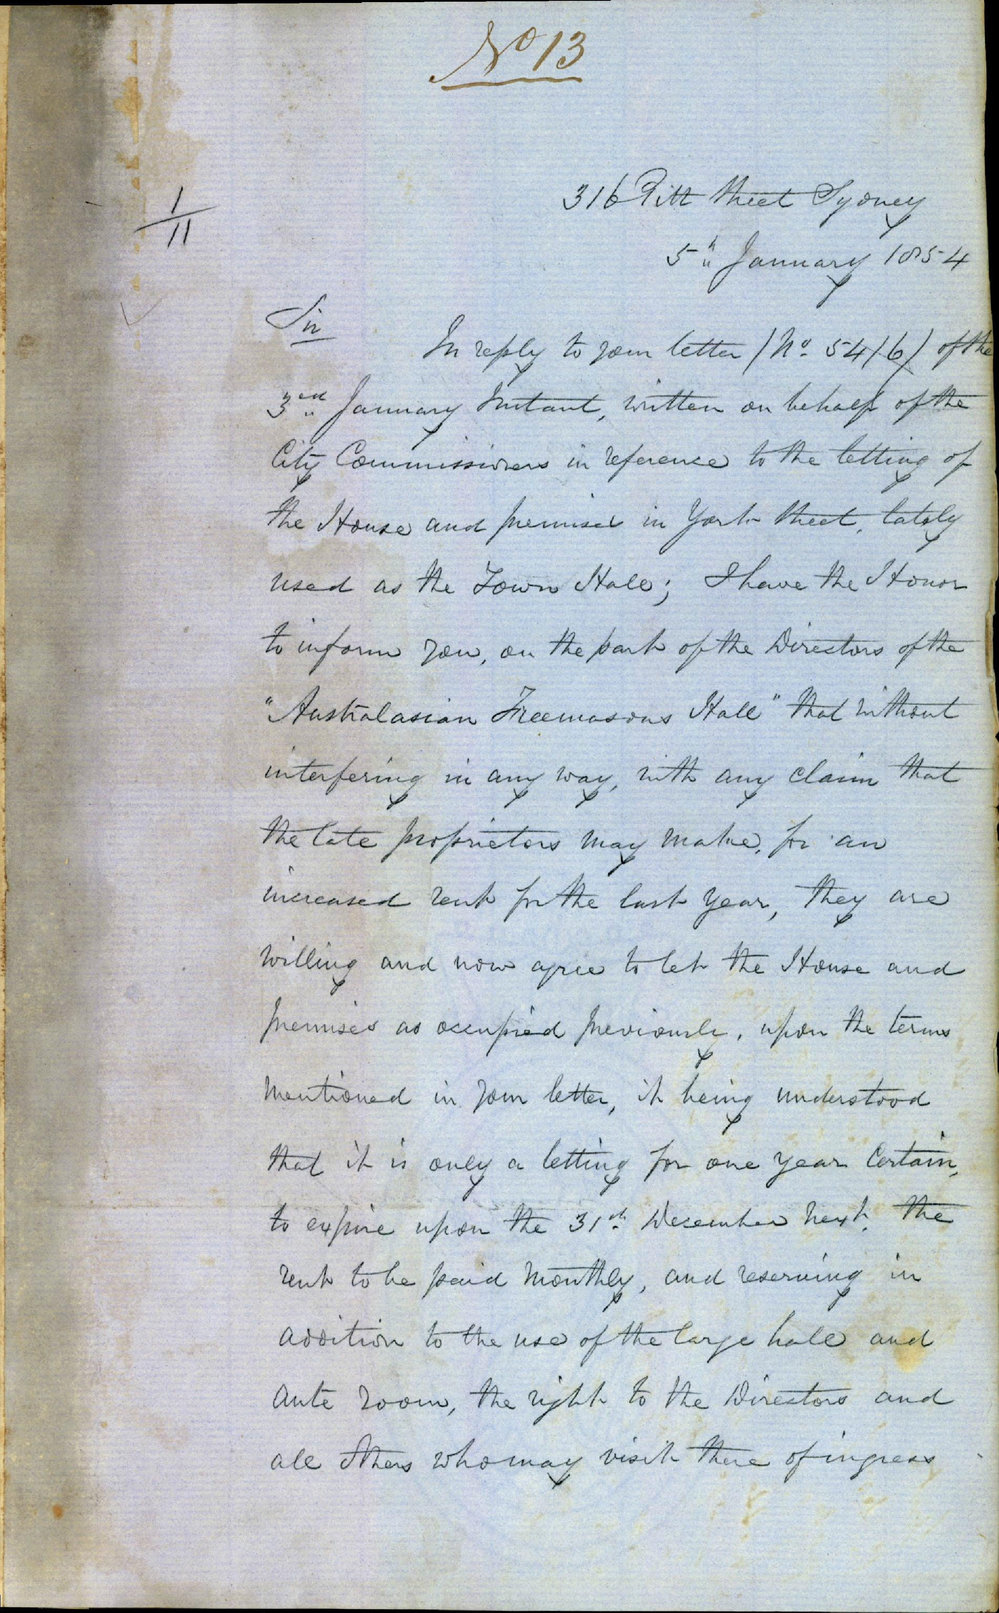 No 13
316 Pitt Street Sydney
1/11
5th January 1854
Sir
In reply to your letter (No. 54/6) of the
3rd January Instant, written on behalf of the
City Commissioners in reference to the letting of
the House and premises in York Street, lately
used as the Town Hall; I have the Honor
to inform you, on the part of the Directors of the
"Australasian Freemasons Hall" that without
interfering in any way, with any claim that
the late proprietors may make, for an
increased rent for the last year, they are
willing and now agree to let the House and
premises as occupied previously, upon the terms
mentioned in your letter, it being understood
that it is only a letting for one year certain,
to expire upon the 31st December next. The
rent to be paid monthly, and reserving in
addition to the use of the large hall and
ante room, the right to the Directors and
all others who may visit there of ingress